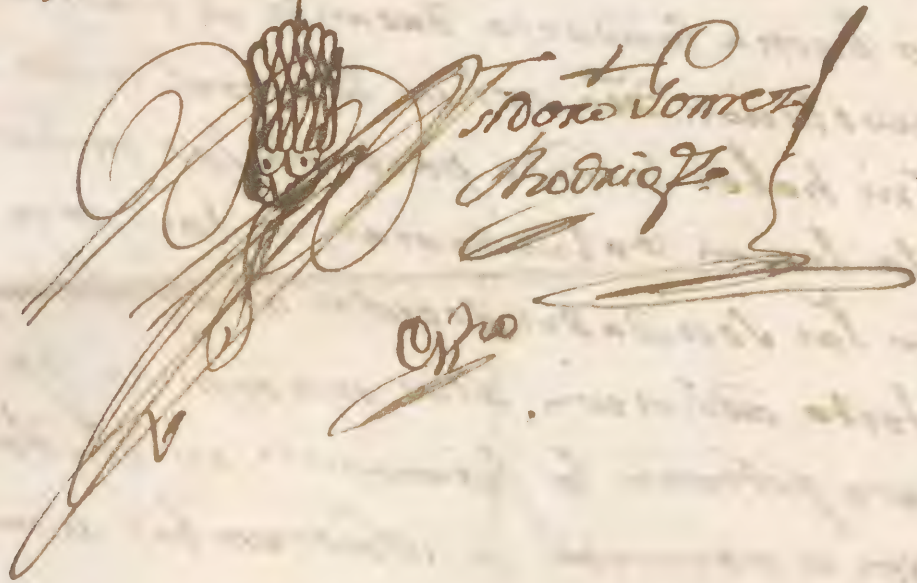 isidoro Gomez
Rodrigz